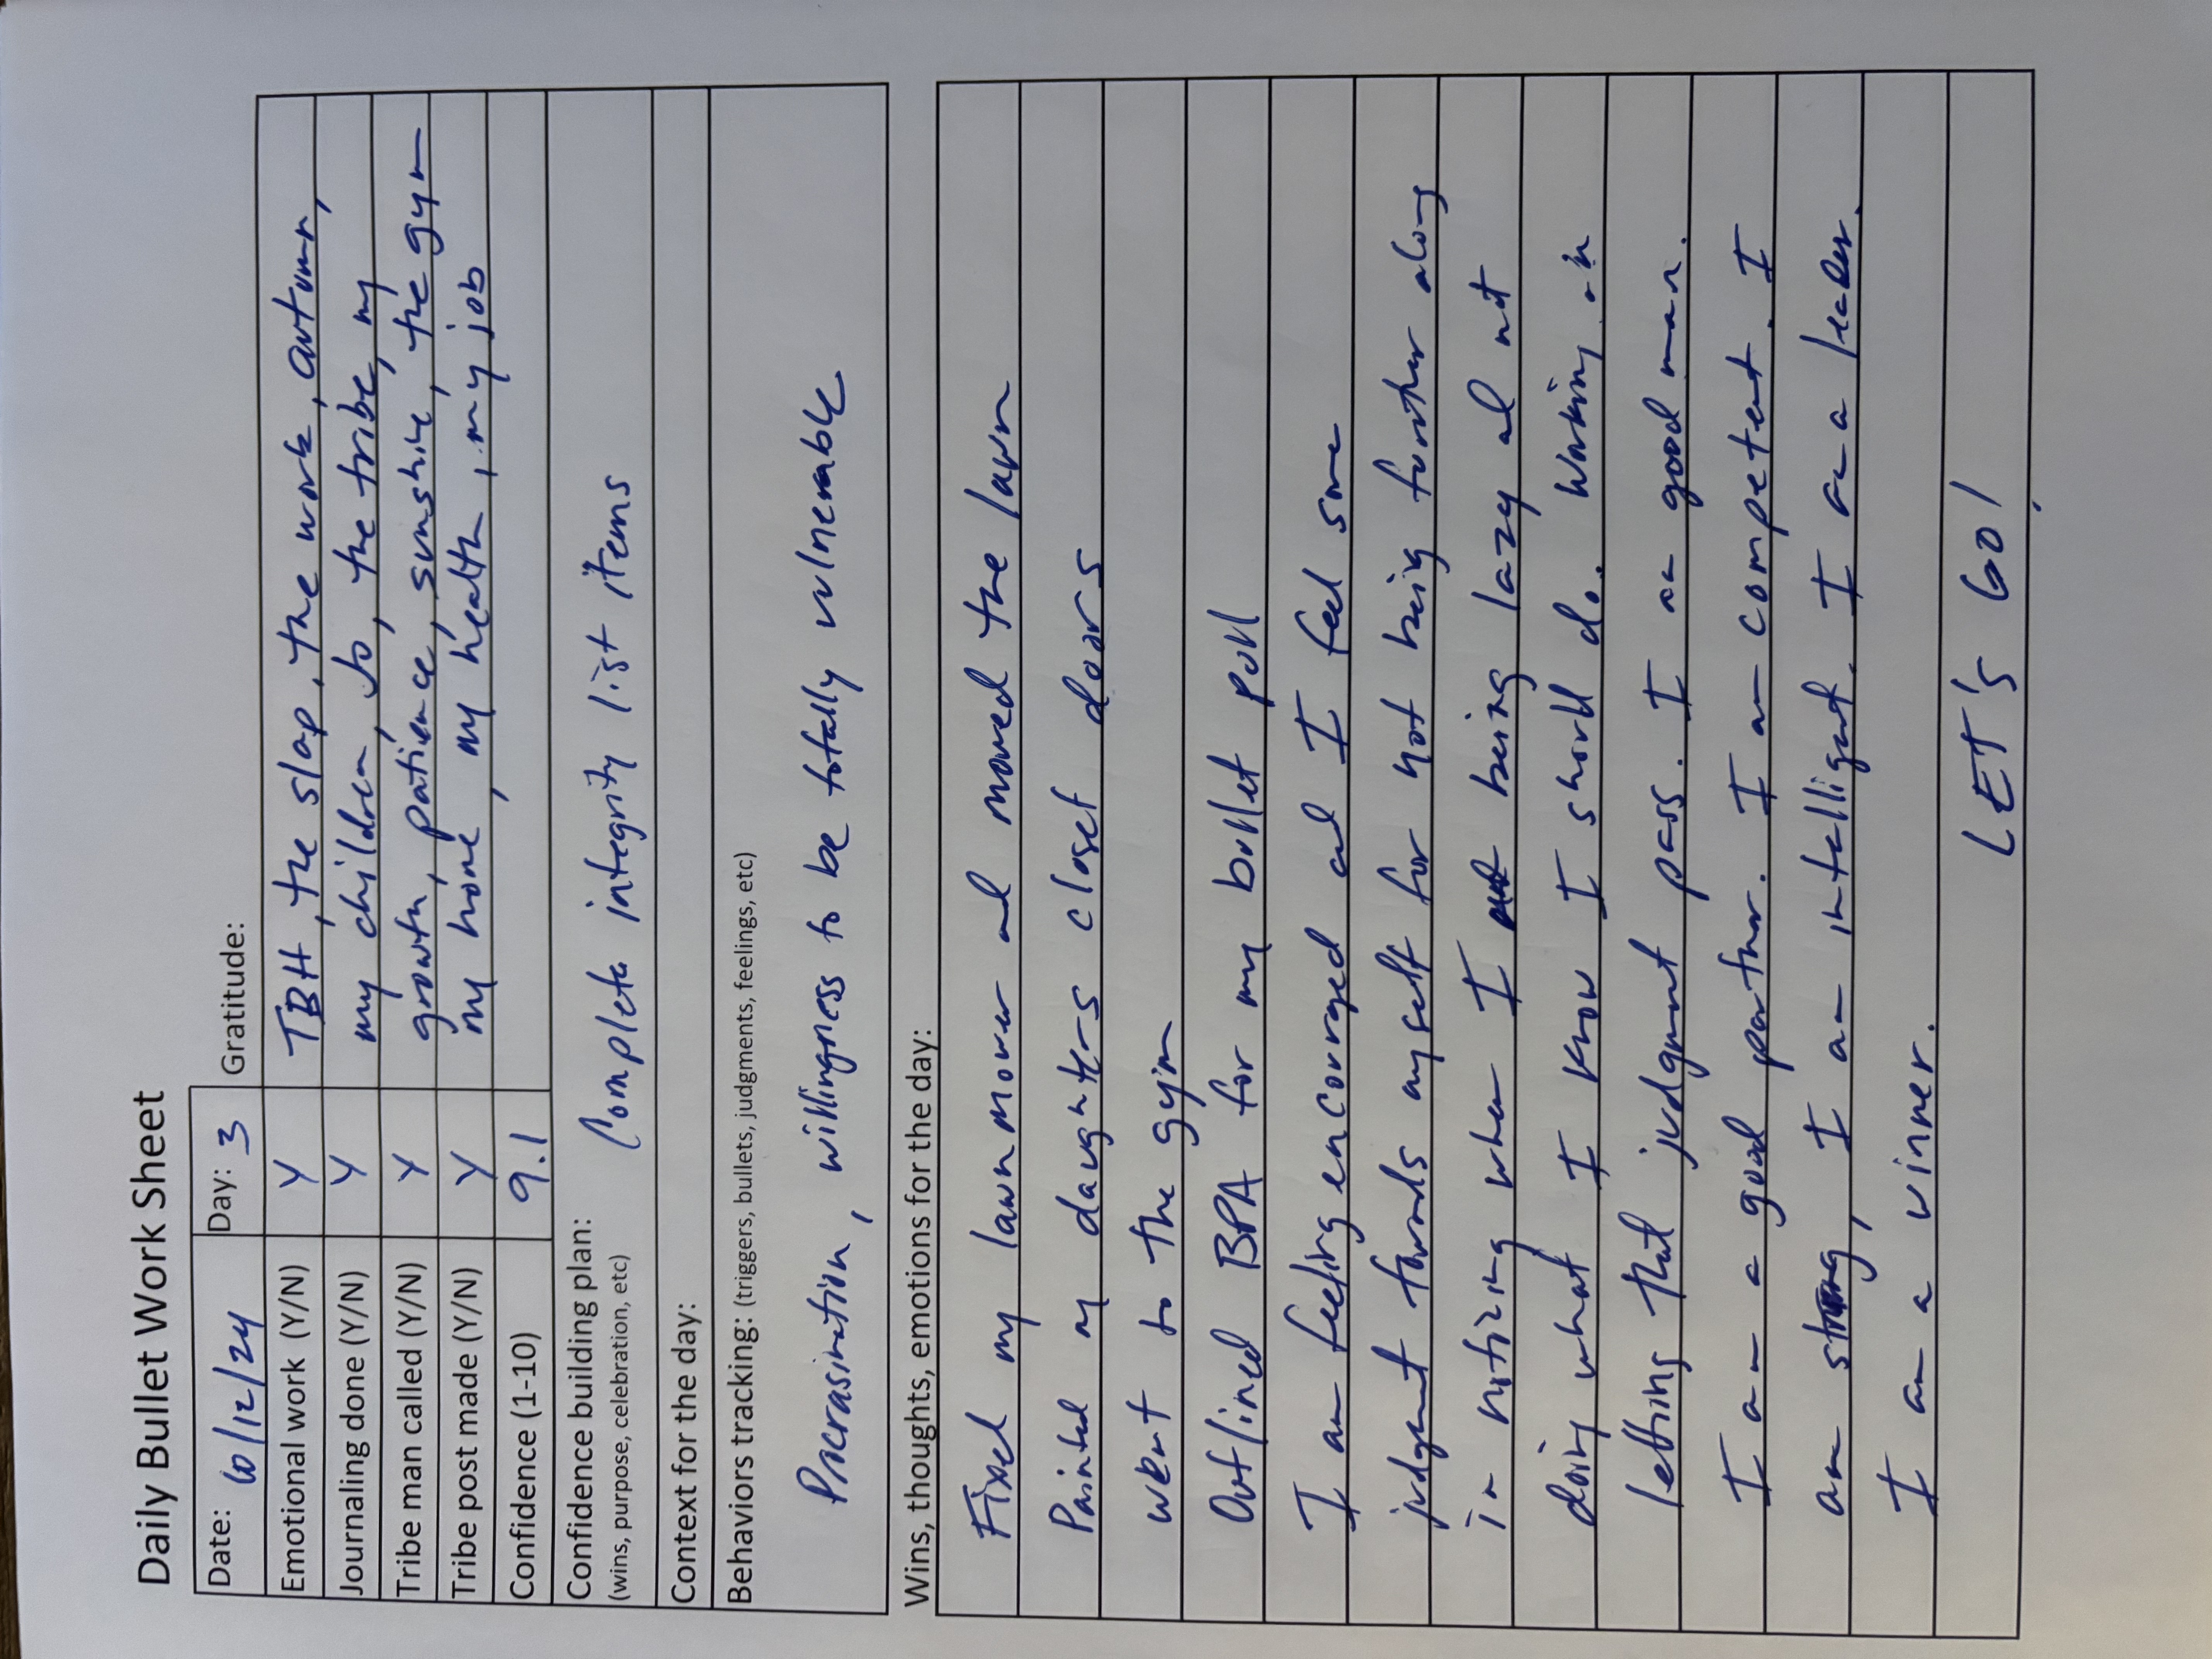 Daily Bullet Work Sheet
Date: 10/12/24 Day: 3 Gratitude:
Emotional work (Y/N) Y TBH, the slap, the work, autumn,
Journaling done (Y/N) Y my children, Jo, the tribe, my
Tribe man called (Y/N) Y growth, patience, sunshine, the gym
Tribe post made (Y/N) Y my home, my health, my job
Confidence (1-10) 9.1
Confidence building plan: Complete integrity list items
(wins, purpose, celebration, etc)
Context for the day:
Behaviors tracking: (triggers, bullets, judgments, feelings, etc)
Procrasination, willingness to be totally vulnerable
Wins, thoughts, emotions for the day:
Fixed my lawnmower and mowed the lawn
Painted my daughters closet doors
went to the gym
Outlined BPA for my bullet poll
I am feeling encouraged and I feel some
judgment towards myself for not being further along
in notizing when I being lazy and not
doing what I know I should do. Working on
letting that judgment pass. I am a good man.
I am a good partner. I am competent. I
am strong, I am intelligent. I am a leader.
I am a winner.
LET'S GO!